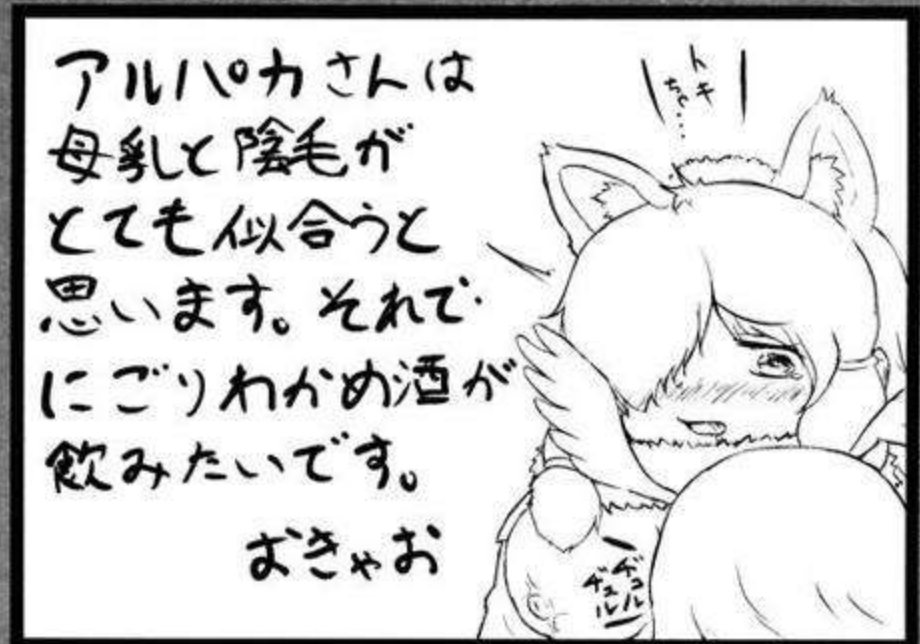 アルパカさんは
母乳と陰毛が
とても似合うと
思います。それで
にごりわかめ酒が
飲みたいです。
むきゃお
トキ
ちゃ…
ヂュル
ヂュル